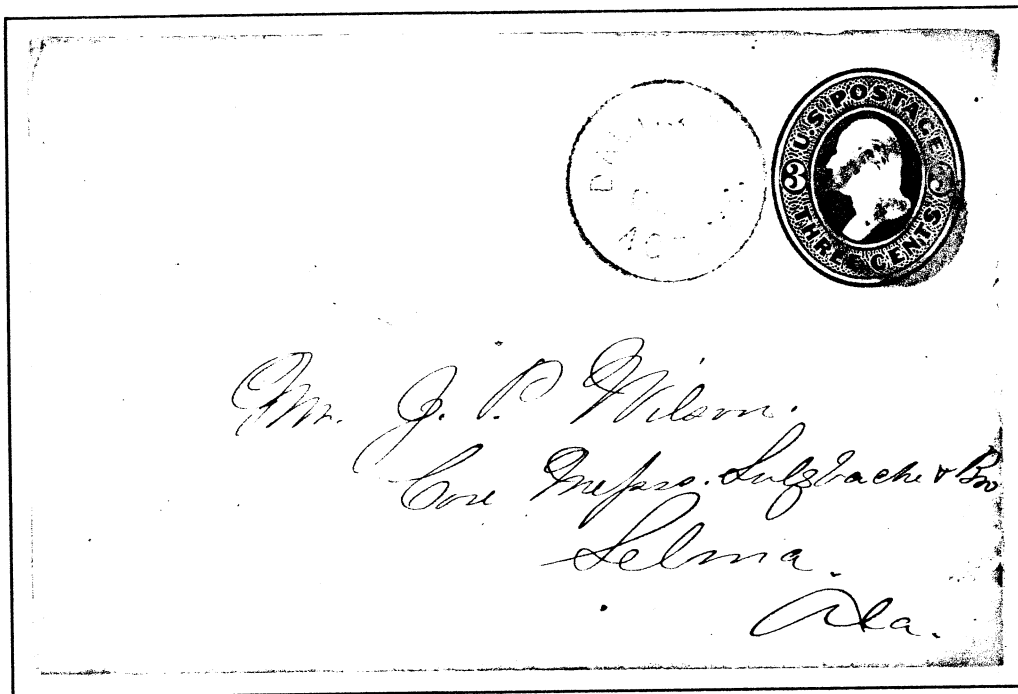 U.S. POSTAGE
3 3
THREE CENTS
Mr. J. P. Wilson.
Care Messrs. Sulzbache & Bro
Selma.
Ala.